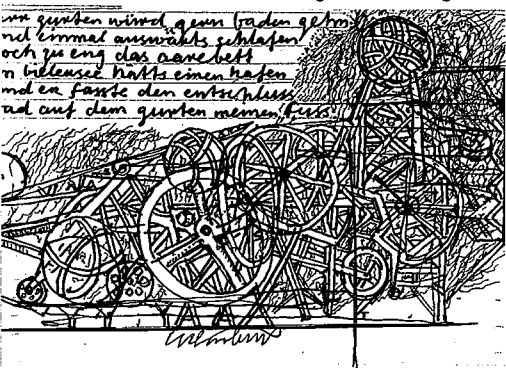 rr gurten würd gern baden gehn
nd einmal auswärts schlafen
och zu eng das aarebett
n bielersee hatts einen hafen
nd er fasste den entschluss
ad auf dem gurten meinen fuss